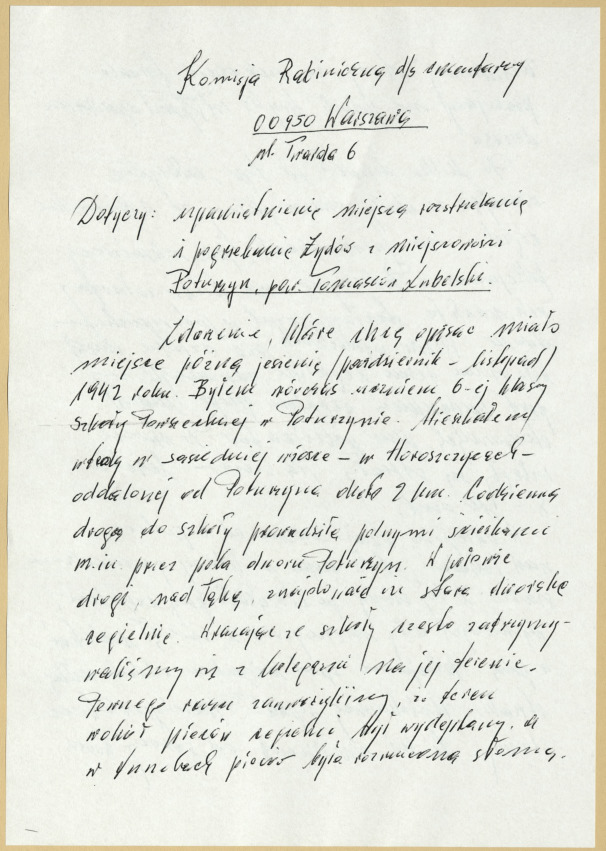 Komisja Rabiniczna d/s cmentarzy
00950 Warszawa
ul. Twarda 6
Dotyczy: upamiętnienia miejsca rozstrzelania
i pogrzebania Żydów z miejscowości
Poturzyn, pow. Tomaszów Lubelski.
Zdarzenie, które chcę opisać miało
miejsce późną jesienią /październik - listopad/
1942 roku. Byłem wówczas uczniem 6-ej klasy
szkoły Powszechnej w Poturzynie. Mieszkałem
wtedy w sąsiedniej wiosce - w Horoszczycach -
oddalonej od Poturzyna około 2 km. Codzienna
droga do szkoły prowadziła polnymi ścieżkami
m.in. przez pola dworu Poturzyn. W połowie
drogi, nad łąką, znajdowała się stara dworska
cegielnia. Wracając ze szkoły często zatrzymy-
waliśmy się z kolegami na jej terenie.
Pewnego razu zauważyliśmy, że teren
wokół pieców cegielni był wydeptany, a
w pieców była rozrzucona słoma.